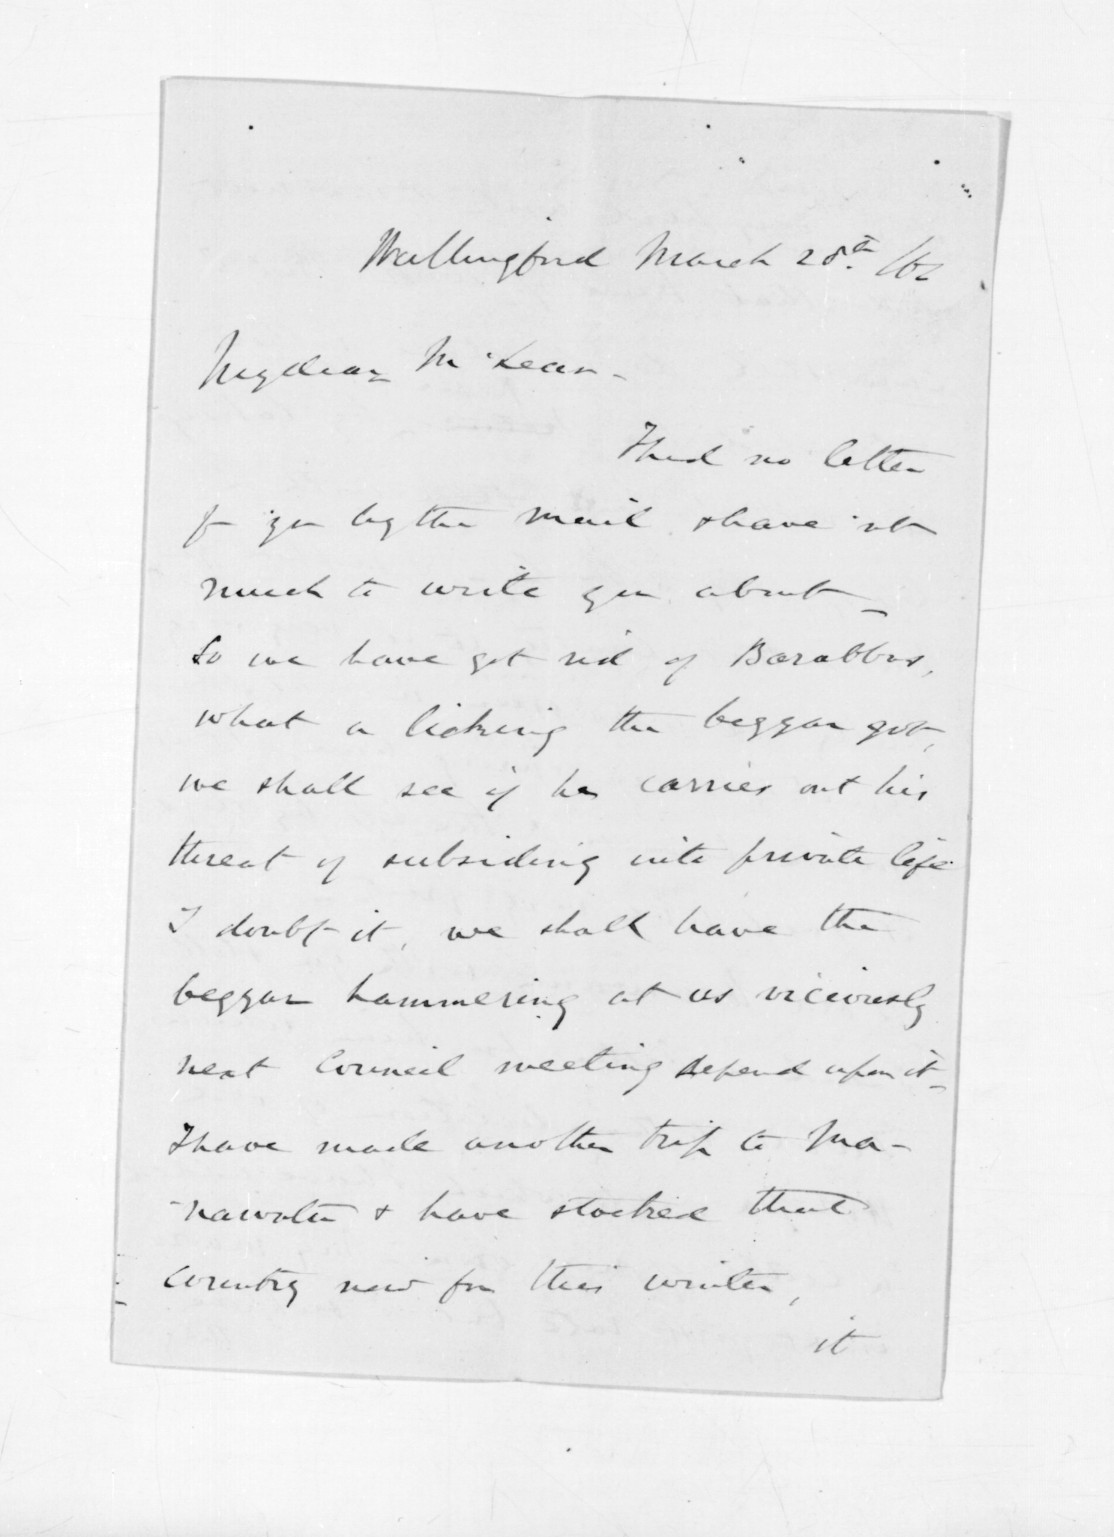 Wallingford March 28th /62
My dear McLean -
I had no letter
fm you by the mail & have not
much to write you about -
So we have got rid of Barabbas,
what a licking the beggar got,
we shall see if he carries out his
threat of subsiding into private life
I doubt it, we shall have the
beggar hammering at us viciously
next Council meeting depend upon it -
I have made another trip to Ma-
-nawatu & have stocked that
country now for this winter,
it